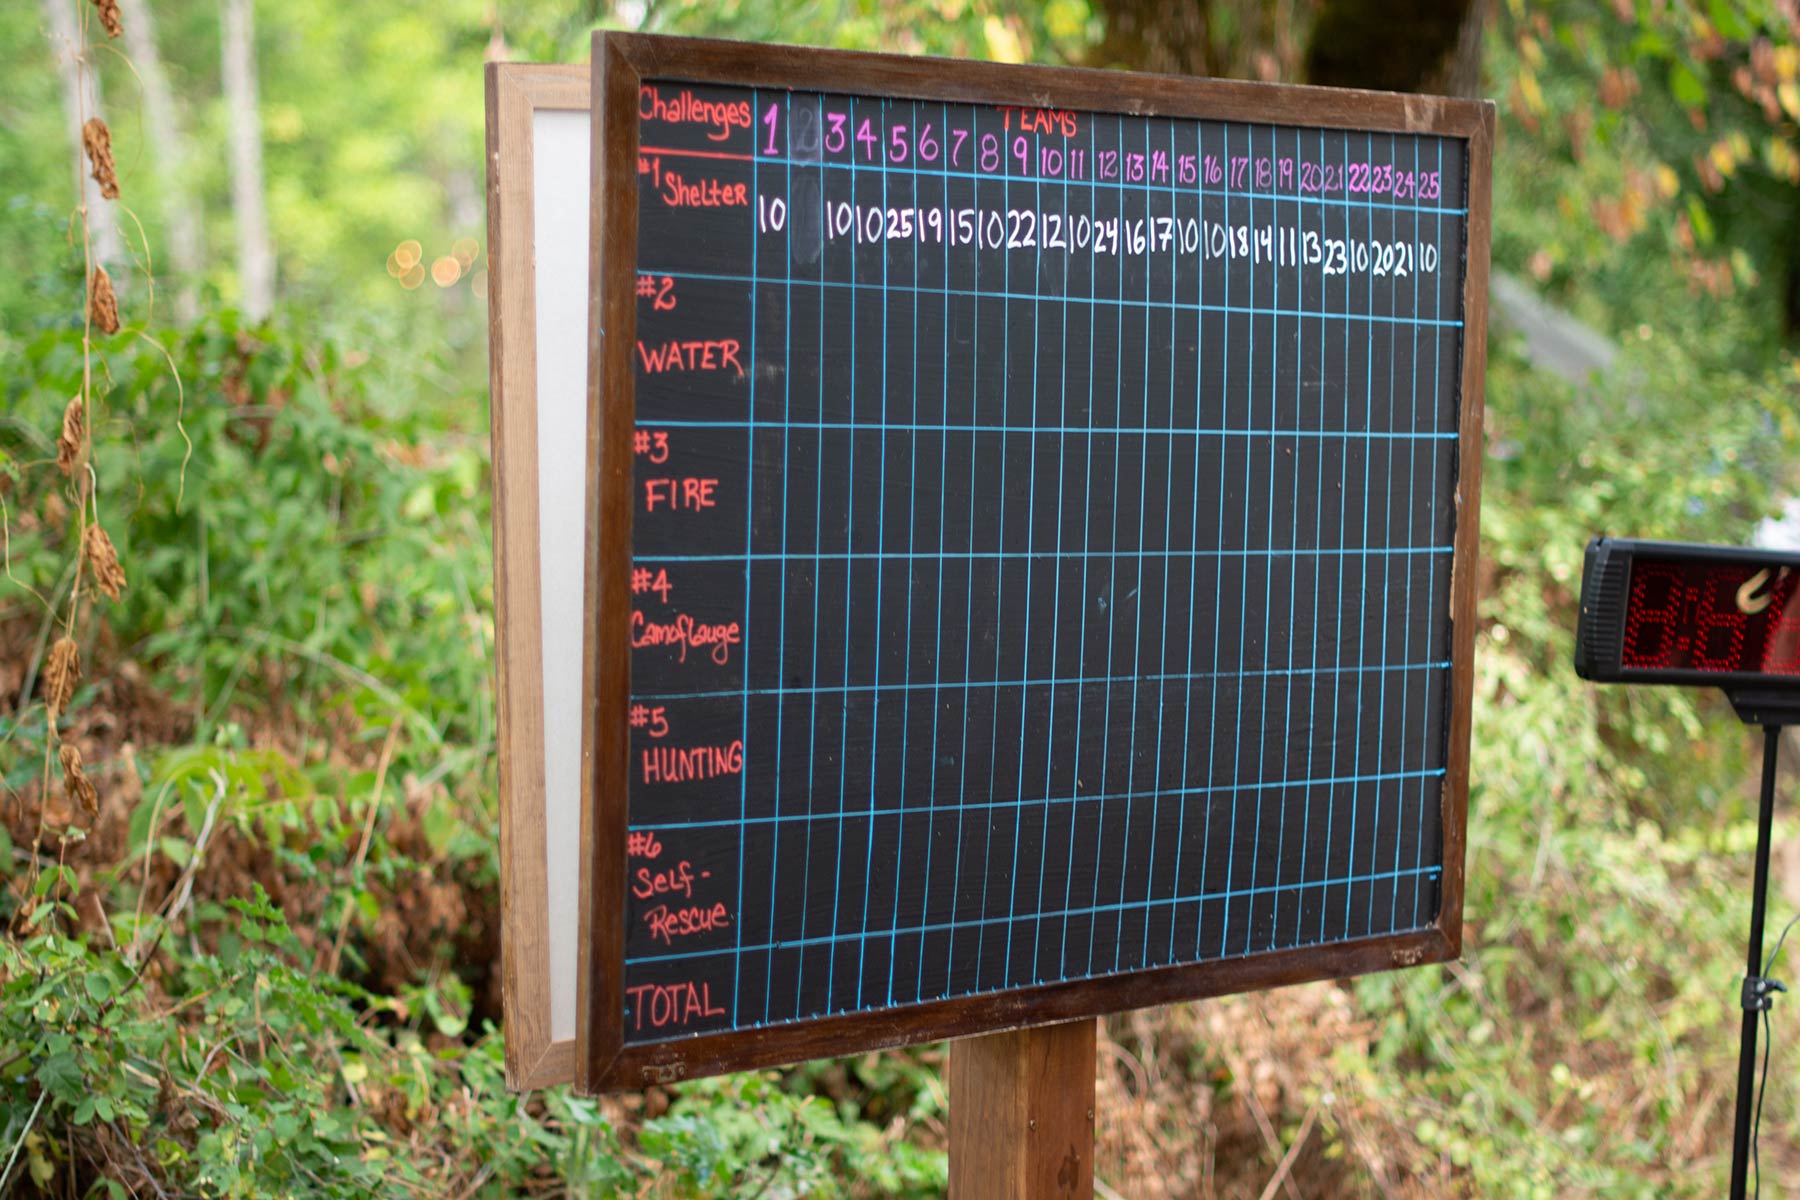 TEAMS
Challenges 1 2 3 4 5 6 7 8 9 10 11 12 13 14 15 16 17 18 19 20 21 22 23 24 25
#1 Shelter
10 10 10 25 19 15 10 22 12 10 24 16 17 10 10 18 14 11 13 23 10 20 21 10
#2
WATER
#3
FIRE
#4
Camoflauge
#5
HUNTING
#6
Self-
Rescue
TOTAL